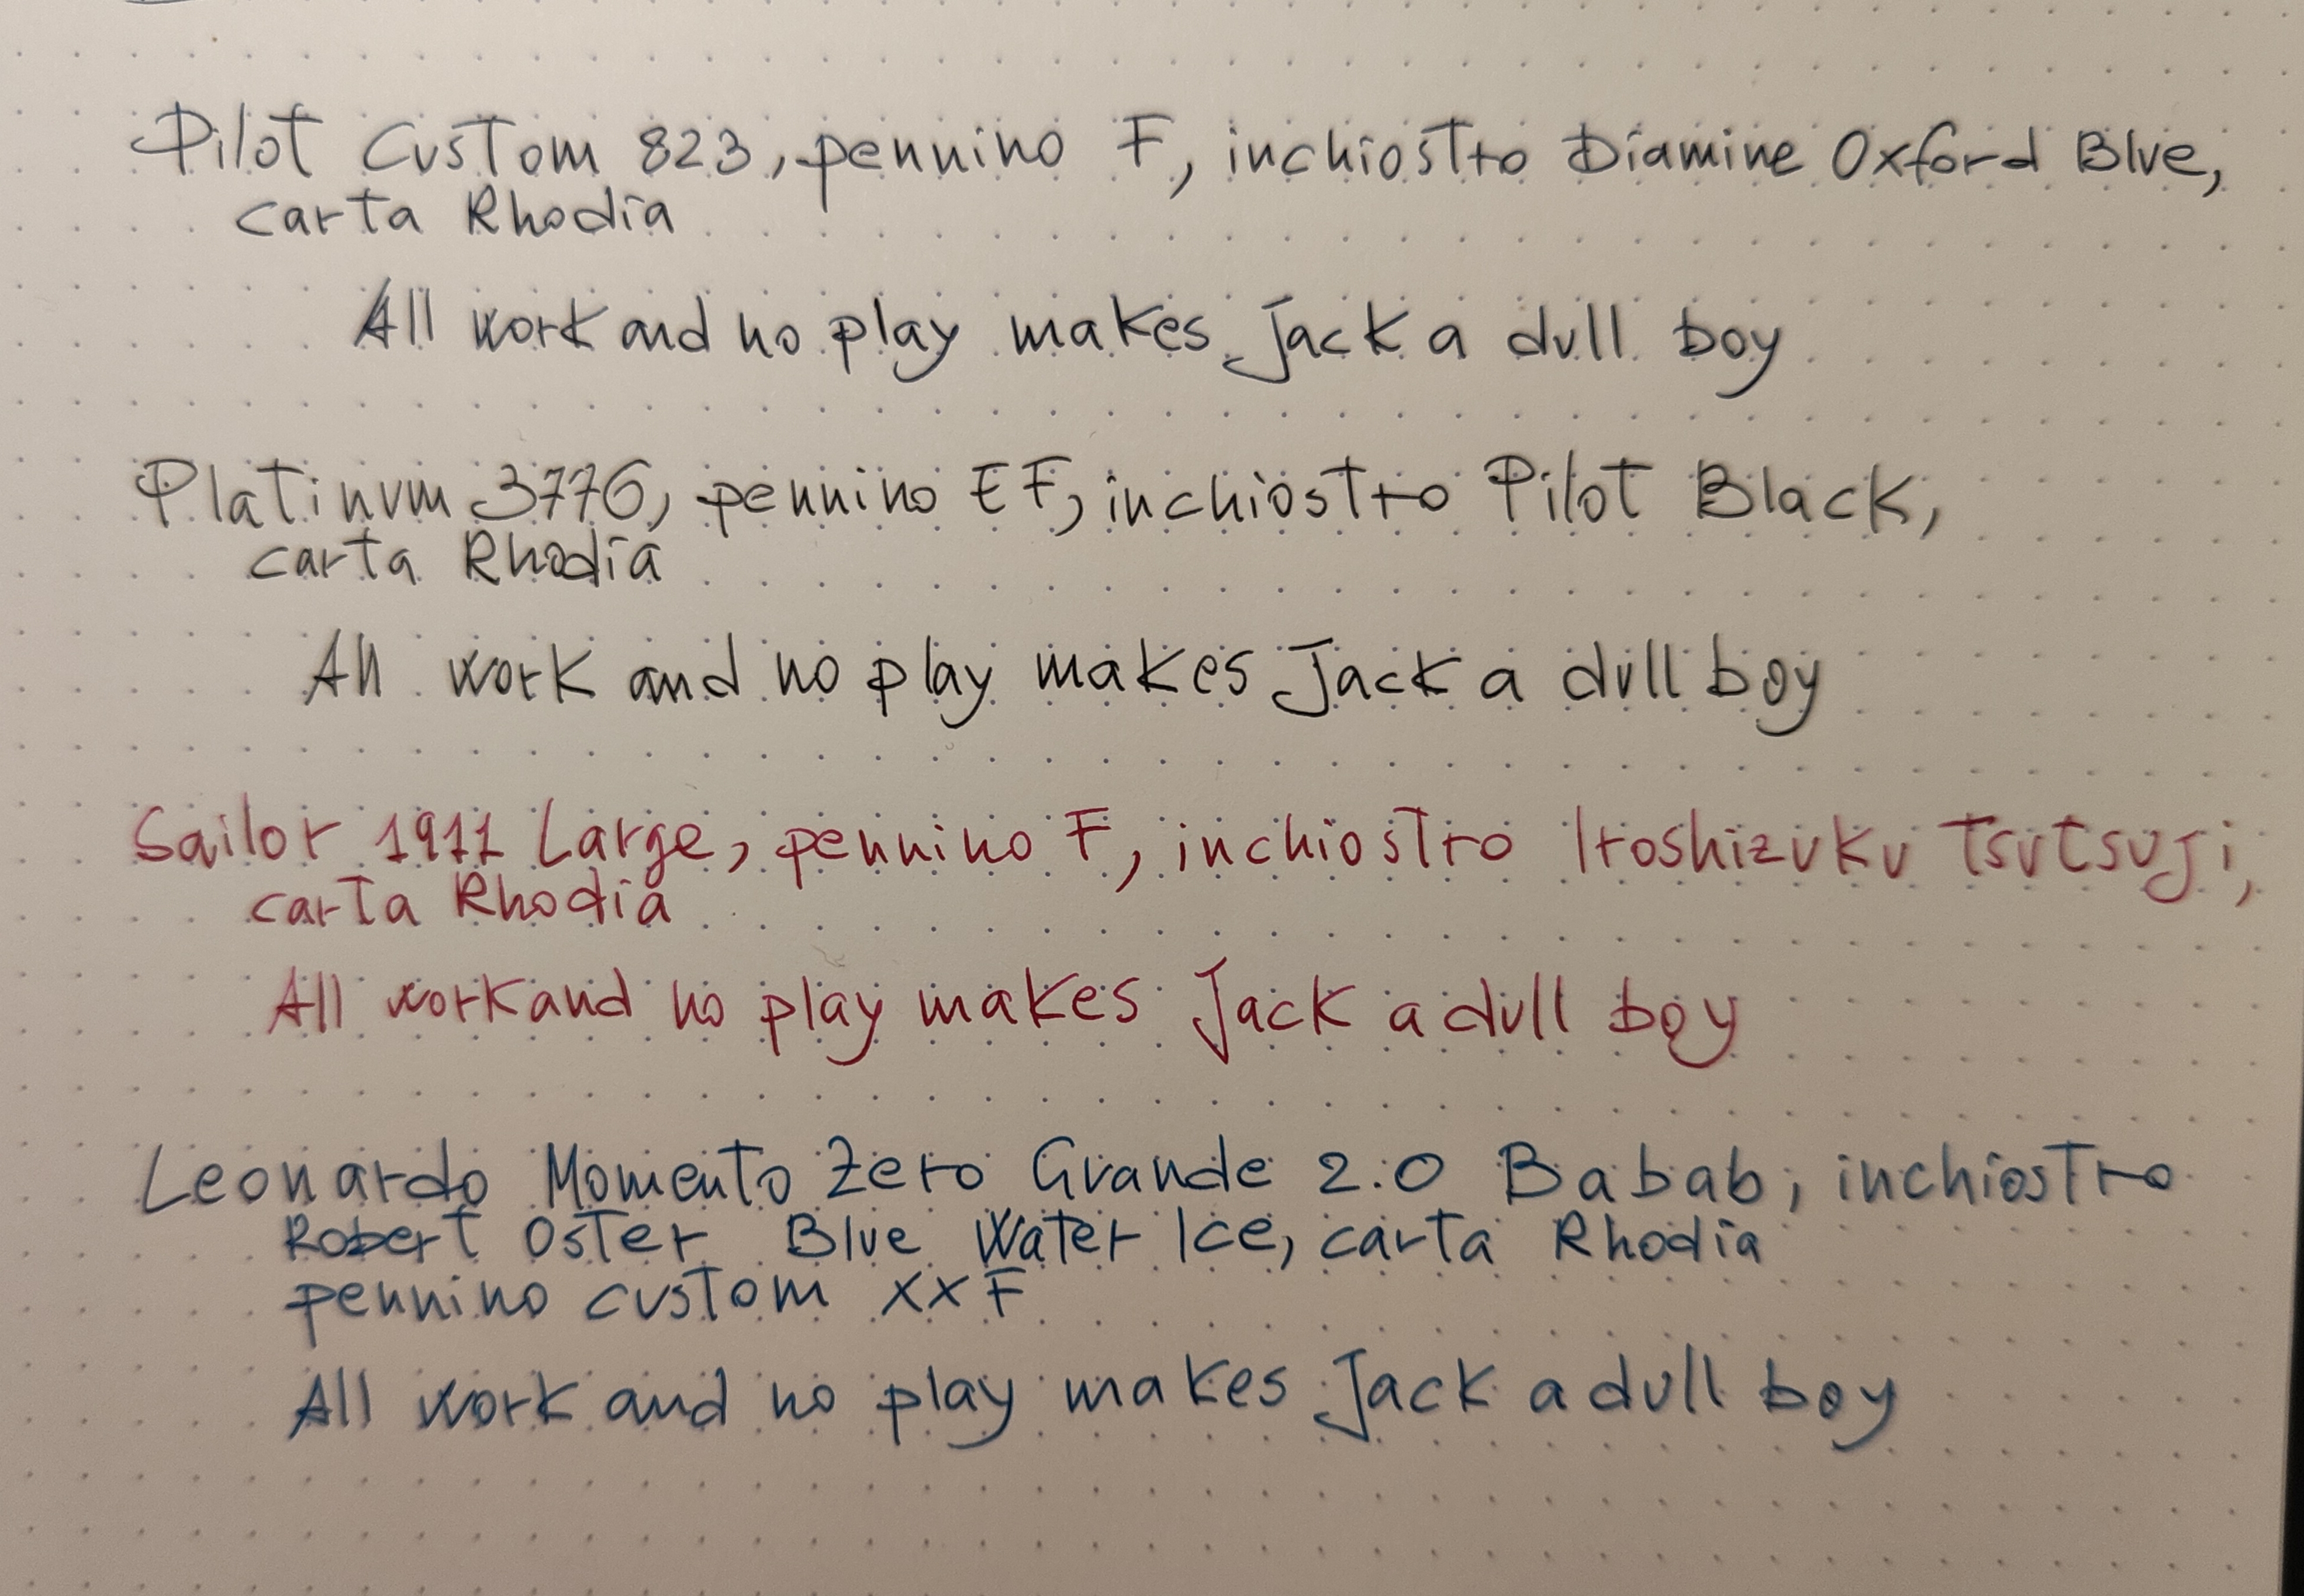 Pilot Custom 823, pennino F, inchiostro Diamine Oxford Blue,
carta Rhodia
All work and no play makes Jack a dull boy
Platinum 3776, pennino EF, inchiostro Pilot Black,
carta Rhodia
All work and no play makes Jack a dull boy
Sailor 1911 Large, pennino F, inchiostro Iroshizuku Tsutsuji,
carta Rhodia
All work and no play makes Jack a dull boy
Leonardo Momento Zero Grande 2.0 Babab, inchiostro
Robert Oster Blue Water Ice, carta Rhodia
pennino custom XXF
All work and no play makes Jack a dull boy